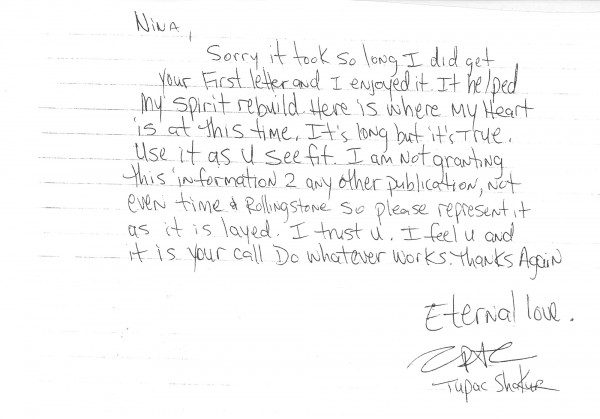 Nina,
Sorry it took so long I did get
your First letter and I enjoyed it. It helped
my spirit rebuild. Here is where my Heart
is at this time. It's long but it's True.
Use it as U see fit. I am not granting
this information 2 any other publication, not
even time & Rollingstone so please represent it
as it is layed. I trust u. I feel u and
it is your call Do whatever works. Thanks Again
Eternal love.
Tupac Shakur